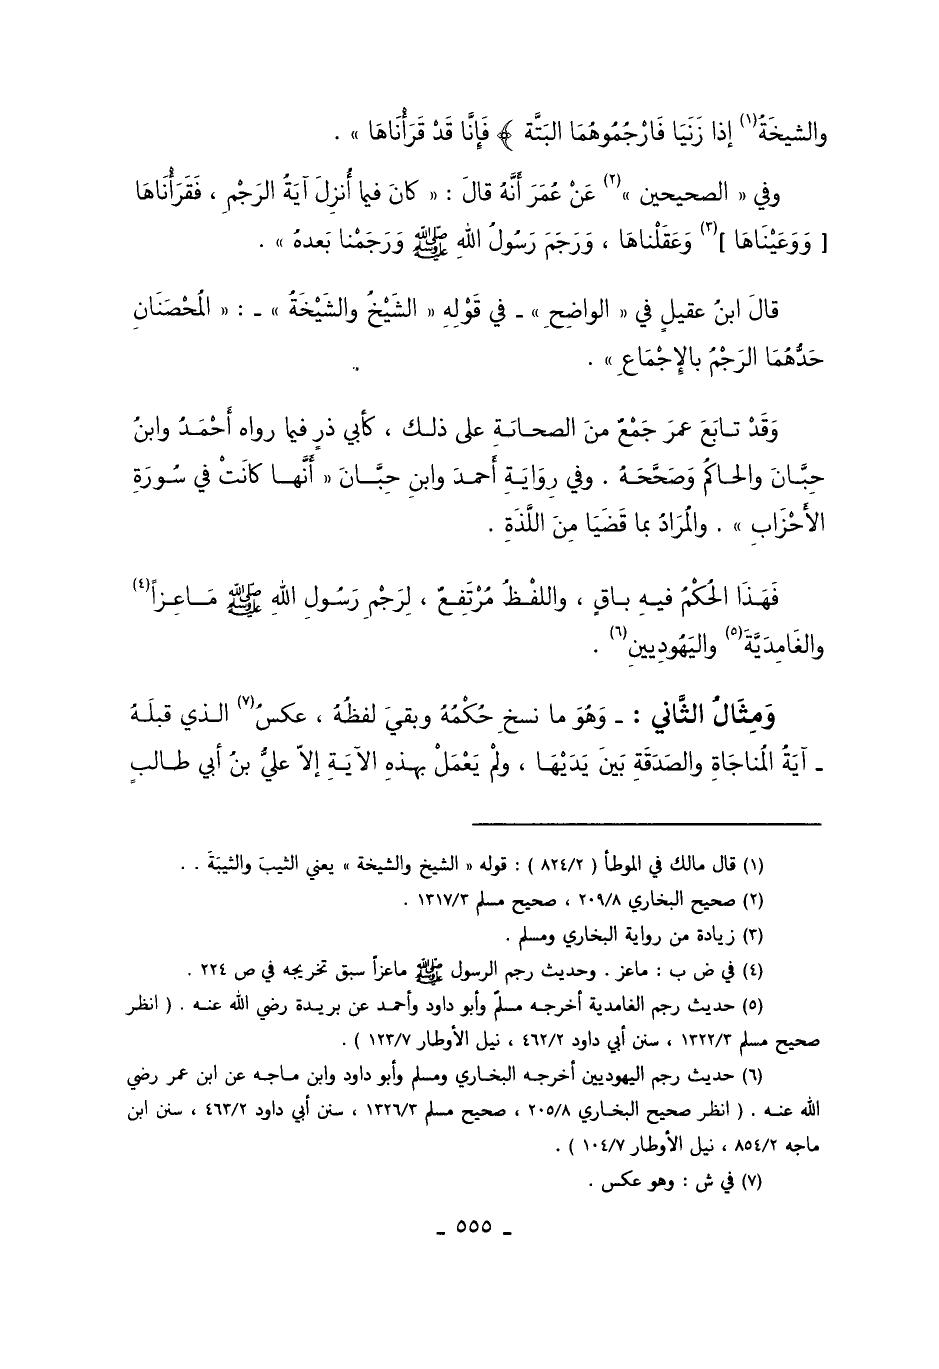 والشيخةُ(١) إذا زَنَيَا فَارْجُمُوهُمَا البَتَّة ﴾ فَإِنَّا قَدْ قَرَأْنَاهَا » .
وفي « الصحيحين »(٢) عَنْ عُمَرَ أَنَّهُ قالَ : « كانَ فيما أُنزِلَ آيَةُ الرَجْمِ ، فَقَرَأْنَاهَا
[ وَوَعَيْنَاهَا ](٣) وَعَقَلْناهَا ، وَرَجَمَ رَسُولُ اللهِ ﷺ وَرَجَمْنا بَعدهُ » .
قالَ ابنُ عقيلٍ في « الواضِحِ » ـ في قَوْلِهِ « الشَيْخُ والشَيْخَةُ » ـ : « الْمُحْصَنَانِ
حَدُّهُمَا الرَجْمُ بالإِجْمَاعِ » .
وَقَدْ تـابَعَ عمرَ جَمْعٌ منَ الصحـابَـةِ على ذلـك ، كأبي ذرٍ فيما رواه أَحْمَـدُ وابنُ
حِبَّـانَ والحـاكمُ وَصَحَّحَـهُ . وفي رِوَايَـةِ أحمـدَ وابنِ حِبَّـــانَ « أَنَّهـــا كانَتْ في سُـورَةِ
الأَحْزَابِ » . والْمُرَادُ بما قَضَيَا مِنَ اللَّذَةِ .
فَهَـذَا الْحُكْمُ فيـهِ بـاقٍ ، واللفْـظُ مُرْتَفِـعٌ ، لِرَجْمِ رَسُـولِ اللهِ ﷺ مَـاعِـزاً(٤)
والغَامِدِيَّةَ(٥) واليَهُودِيينِ(٦) .
وَمِثَالُ الثَّاني : ـ وَهُوَ ما نسخ حُكْمُهُ وبقيَ لفظُهُ ، عكسُ(٧) الـذي قبلَـهُ
ـ آيَةُ الْمُناجَاةِ والصَدَقَةِ بَينَ يَدَيْهَـا ، ولمْ يَعْمَـلْ بهـذهِ الآيَـةِ إلاّ عليُّ بنُ أبي طـالبٍ
(١) قال مالك في الموطأ ( ٨٢٤/٢ ) : قوله « الشيخ والشيخة » يعني الثيبَ والثيبَةَ . .
(٢) صحيح البخاري ٢٠٩/٨ ، صحيح مسلم ١٣١٧/٣ .
(٣) زيادة من رواية البخاري ومسلم .
(٤) في ض ب : ماعز . وحديث رجم الرسول ﷺ ماعزاً سبق تخريجه في ص ٢٢٤ .
(٥) حديث رجم الغامدية أخرجـه مسلمٌ وأبو داود وأحمـد عن بريـدة رضي الله عنـه . ( انظر
صحيح مسلم ١٣٢٢/٣ ، سنن أبي داود ٤٦٢/٢ ، نيل الأوطار ١٢٣/٧ ) .
(٦) حديث رجم اليهوديين أخرجـه البخـاري ومسلم وأبو داود وابن مـاجـه عن ابن عمر رضي
الله عنـه . ( انظر صحيح البخـاري ٢٠٥/٨ ، صحيح مسلم ١٣٢٦/٣ ، سنن أبي داود ٤٦٣/٢ ، سنن ابن
ماجه ٨٥٤/٢ ، نيل الأوطار ١٠٤/٧ ) .
(٧) في ش : وهو عكس .
ـ ٥٥٥ ـ